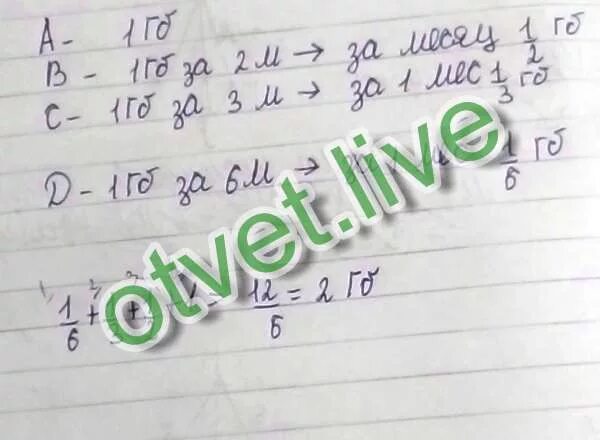 A - 1 Гб
B - 1Гб за 2 м → за месяц 1/2 Гб
C - 1Гб за 3 м → за 1 мес 1/3 Гб
D - 1Гб за 6 м → 1/6 Гб
otvet.live
1/6 + 1/3 + 12/6 = 2 Гб